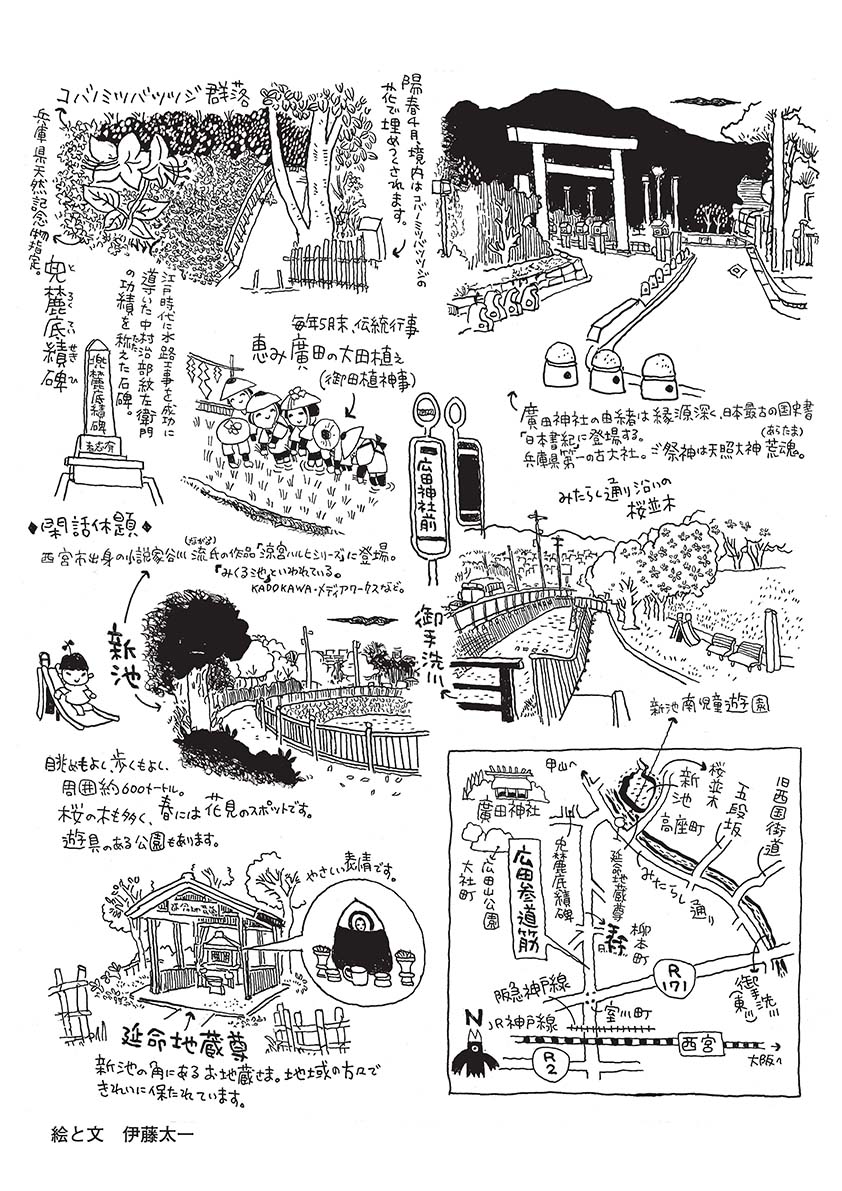 コバノミツバツツジ群落
兵庫県天然記念物指定。
陽春4月、境内はコバノミツバツツジの
花で埋めつくされます。
廣田神社の由緒は縁源深く、日本最古の国史書
「日本書紀」に登場する。
(あらたま)
兵庫県第一の古大社。ご祭神は天照大神荒魂。
とろくていせきひ
兜麓底績碑
江戸時代に水路工事を成功に
導いた中村治部紋左衛門
の功績を称えた石碑。
たた
兜麓底績碑
毎年5月末、伝統行事
恵み廣田の大田植え
(御田植神事)
広田神社前
みたらし通り沿いの
桜並木
◆閑話休題◆
(ながる)
西宮市出身の小説家谷川流氏の作品「涼宮ハルヒシリーズ」に登場。
「みくる池」といわれている。
KADOKAWA・メディアワークスなど。
新池
御手洗川
眺めもよし、歩くもよし、
周囲約600メートル。
桜の木も多く、春には花見のスポットです。
遊具のある公園もあります。
新池南児童遊園
やさしい表情です。
延命地蔵尊
延命地蔵尊
新池の角にあるお地蔵さま。地域の方々で
きれいに保たれています。
甲山へ
廣田神社
新池
桜並木
五段坂
旧西国街道
高座町
兜麓底績碑
延命地蔵尊
みたらし通り
広田山公園
大社町
広田参道筋
柳本町
阪急神戸線
R
171
御手洗川
(東川)
室川町
JR神戸線
N
西宮
R
2
大阪へ
絵と文　伊藤太一